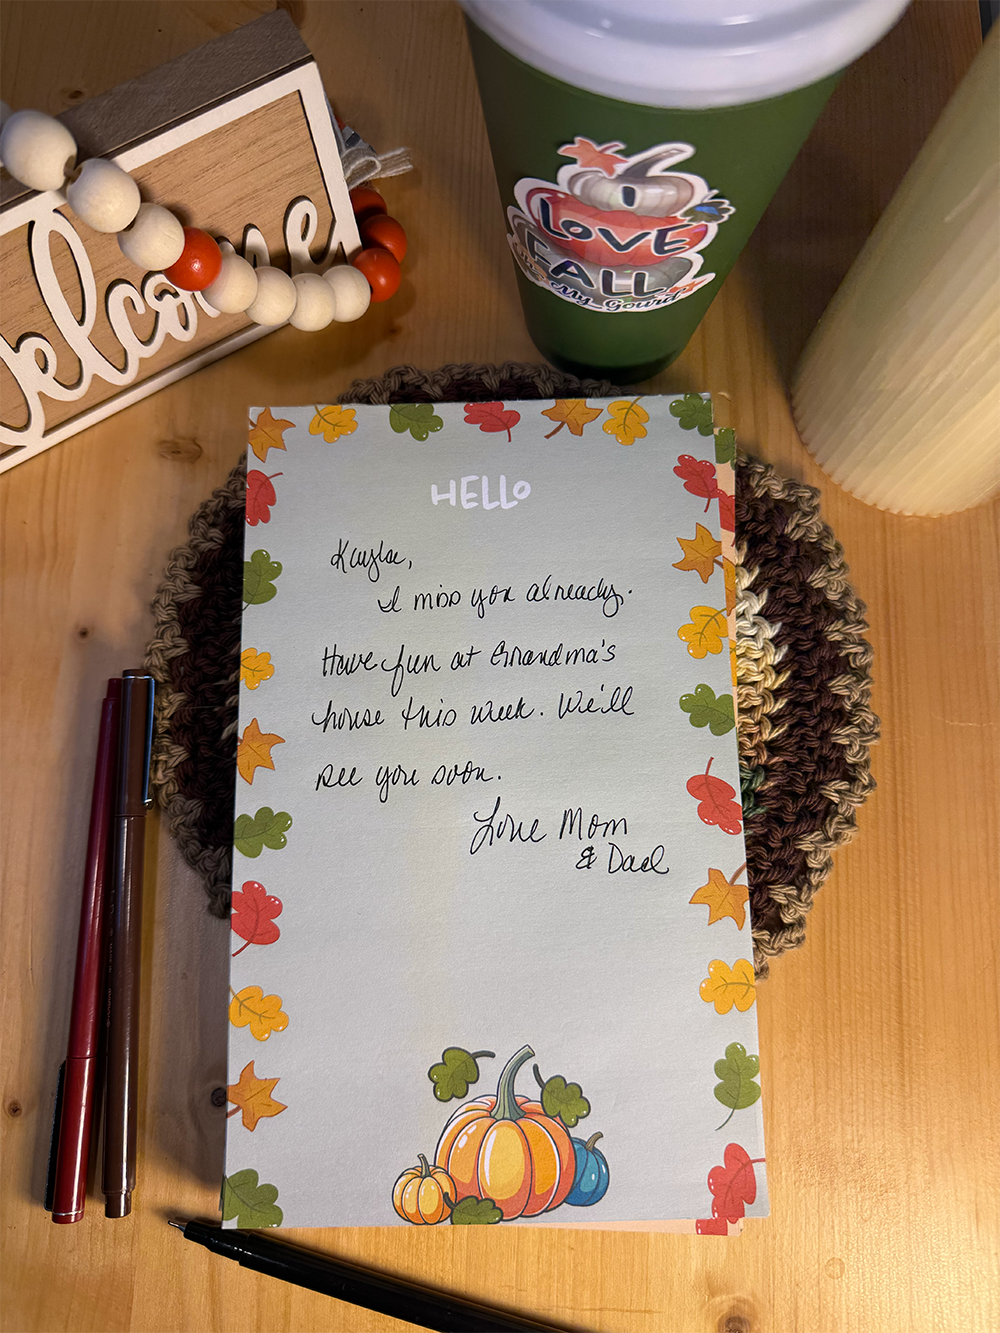 Welcome
I
LOVE
FALL
Oh My Gourd
HELLO
Kayla,
I miss you already.
Have fun at Grandma's
house this week. We'll
see you soon.
Love Mom
& Dad